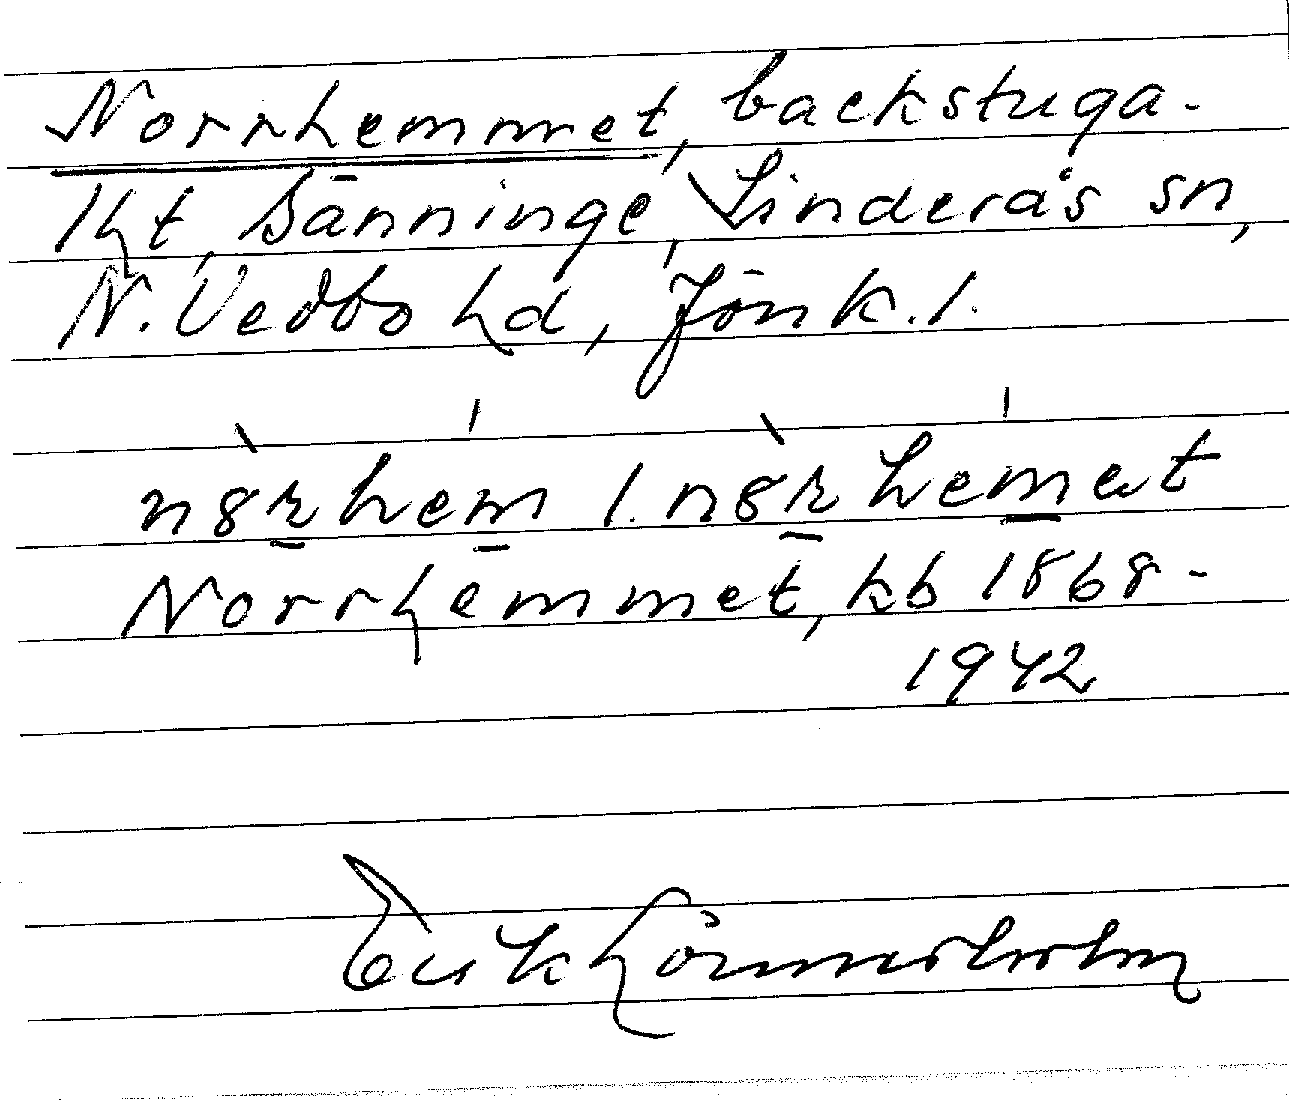 Norrhemmet, backstuga.
Kt, Sänninge, Linderås sn,
N. Vedbo hd, Jönk. l.
n8rhem l. n8rhemət
Norrhemmet, kb 1868-
1942
Erik